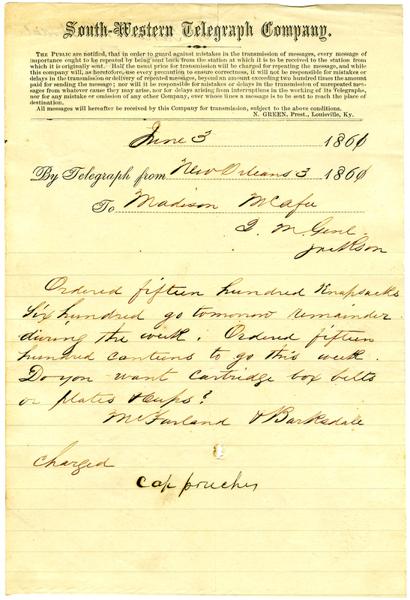 South-Western Telegraph Company.
THE PUBLIC are notified, that in order to guard against mistakes in the transmission of messages, every message of
importance ought to be repeated by being sent back from the station at which it is to be received to the station from
which it is originally sent. Half the usual price for transmission will be charged for repeating the message, and while
this company will, as heretofore, use every precution to ensure correctness, it will not be responsible for mistakes or
delays in the transmission or delivery of repeated messages, beyond an amount exceeding two hundred times the amount
paid for sending the message; nor will it be responsible for mistakes or delays in the transmission of unrepeated mes-
sages from whatever cause they may arise, nor for delays arising from interruptions in the working of its Telegraphs,
nor for any mistake or omission of any other Company, over whose lines a message is to be sent to reach the place of
destination.
All messages will hereafter be received by this Company for transmission, subject to the above conditions.
N. GREEN, Prest., Louisville, Ky.
June 3 1861
By Telegraph from New Orleans 3 1861
To Madison McAfee
Q. M. Genl.
Jackson
Ordered fifteen hundred Knapsacks
Six hundred go tomorrow remainder
during the week. Ordered fifteen
hundred canteens to go this week.
Do you want cartridge box belts
or plates & Cups?
McFarland & Barksdale
charged
cap pouches